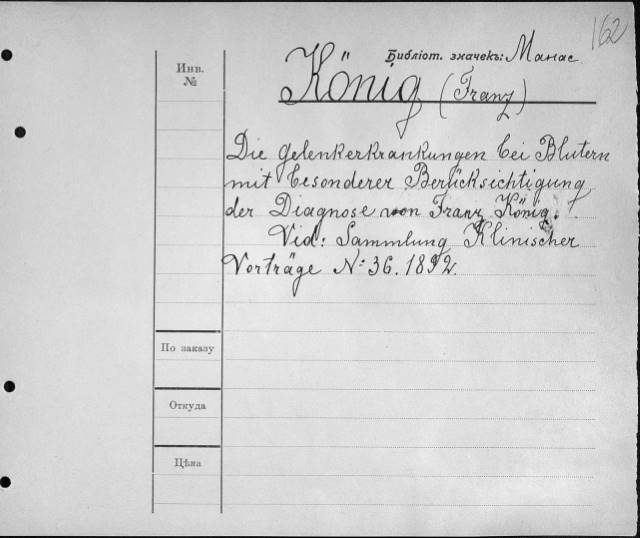 162
Библiот. значекъ: Манас
Инв.
№
König (Franz)
Die gelenkerkrankungen bei Blutern
mit besonderer Berücksichtigung
der Diagnose von Franz König.
Vid: Sammlung Klinischer
Vorträge N: 36. 1892.
По заказу
Откуда
Цѣна